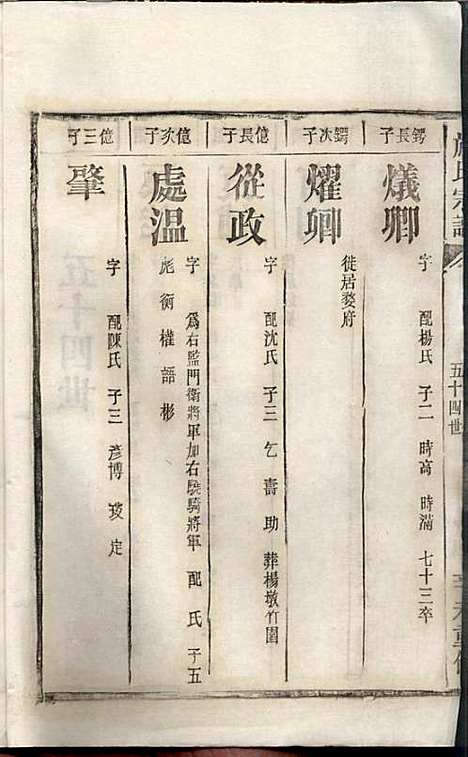 氏宗譜
五十四世
鍔長子
爔卿
字 配楊氏 子二 時高 時滿 七十三卒
鍔次子
燿卿
徙居婺府
億長子
從政
字 配沈氏 子三 乞 壽 助 葬楊墩竹園
億次子
處溫
字 為右監門衛將軍加右驍騎將軍 配 氏 子五
彪 衡 權 語 彬
億三子
肇
字 配陳氏 子三 彥博 定